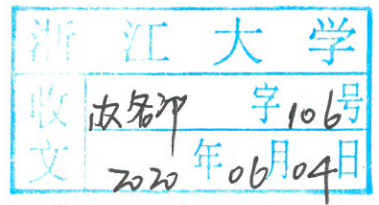 浙江大学
收文
字106号
2020年06月04日